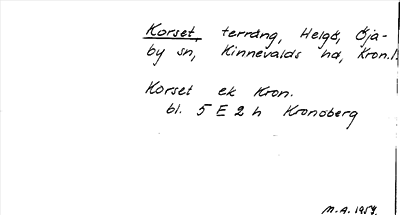 Korset, terräng, Helgö, Öja-
by sn, Kinnevalds hd, Kron.l.
Korset ek Kron.
bl. 5 E 2 h Kronoberg
M.A. 1959.